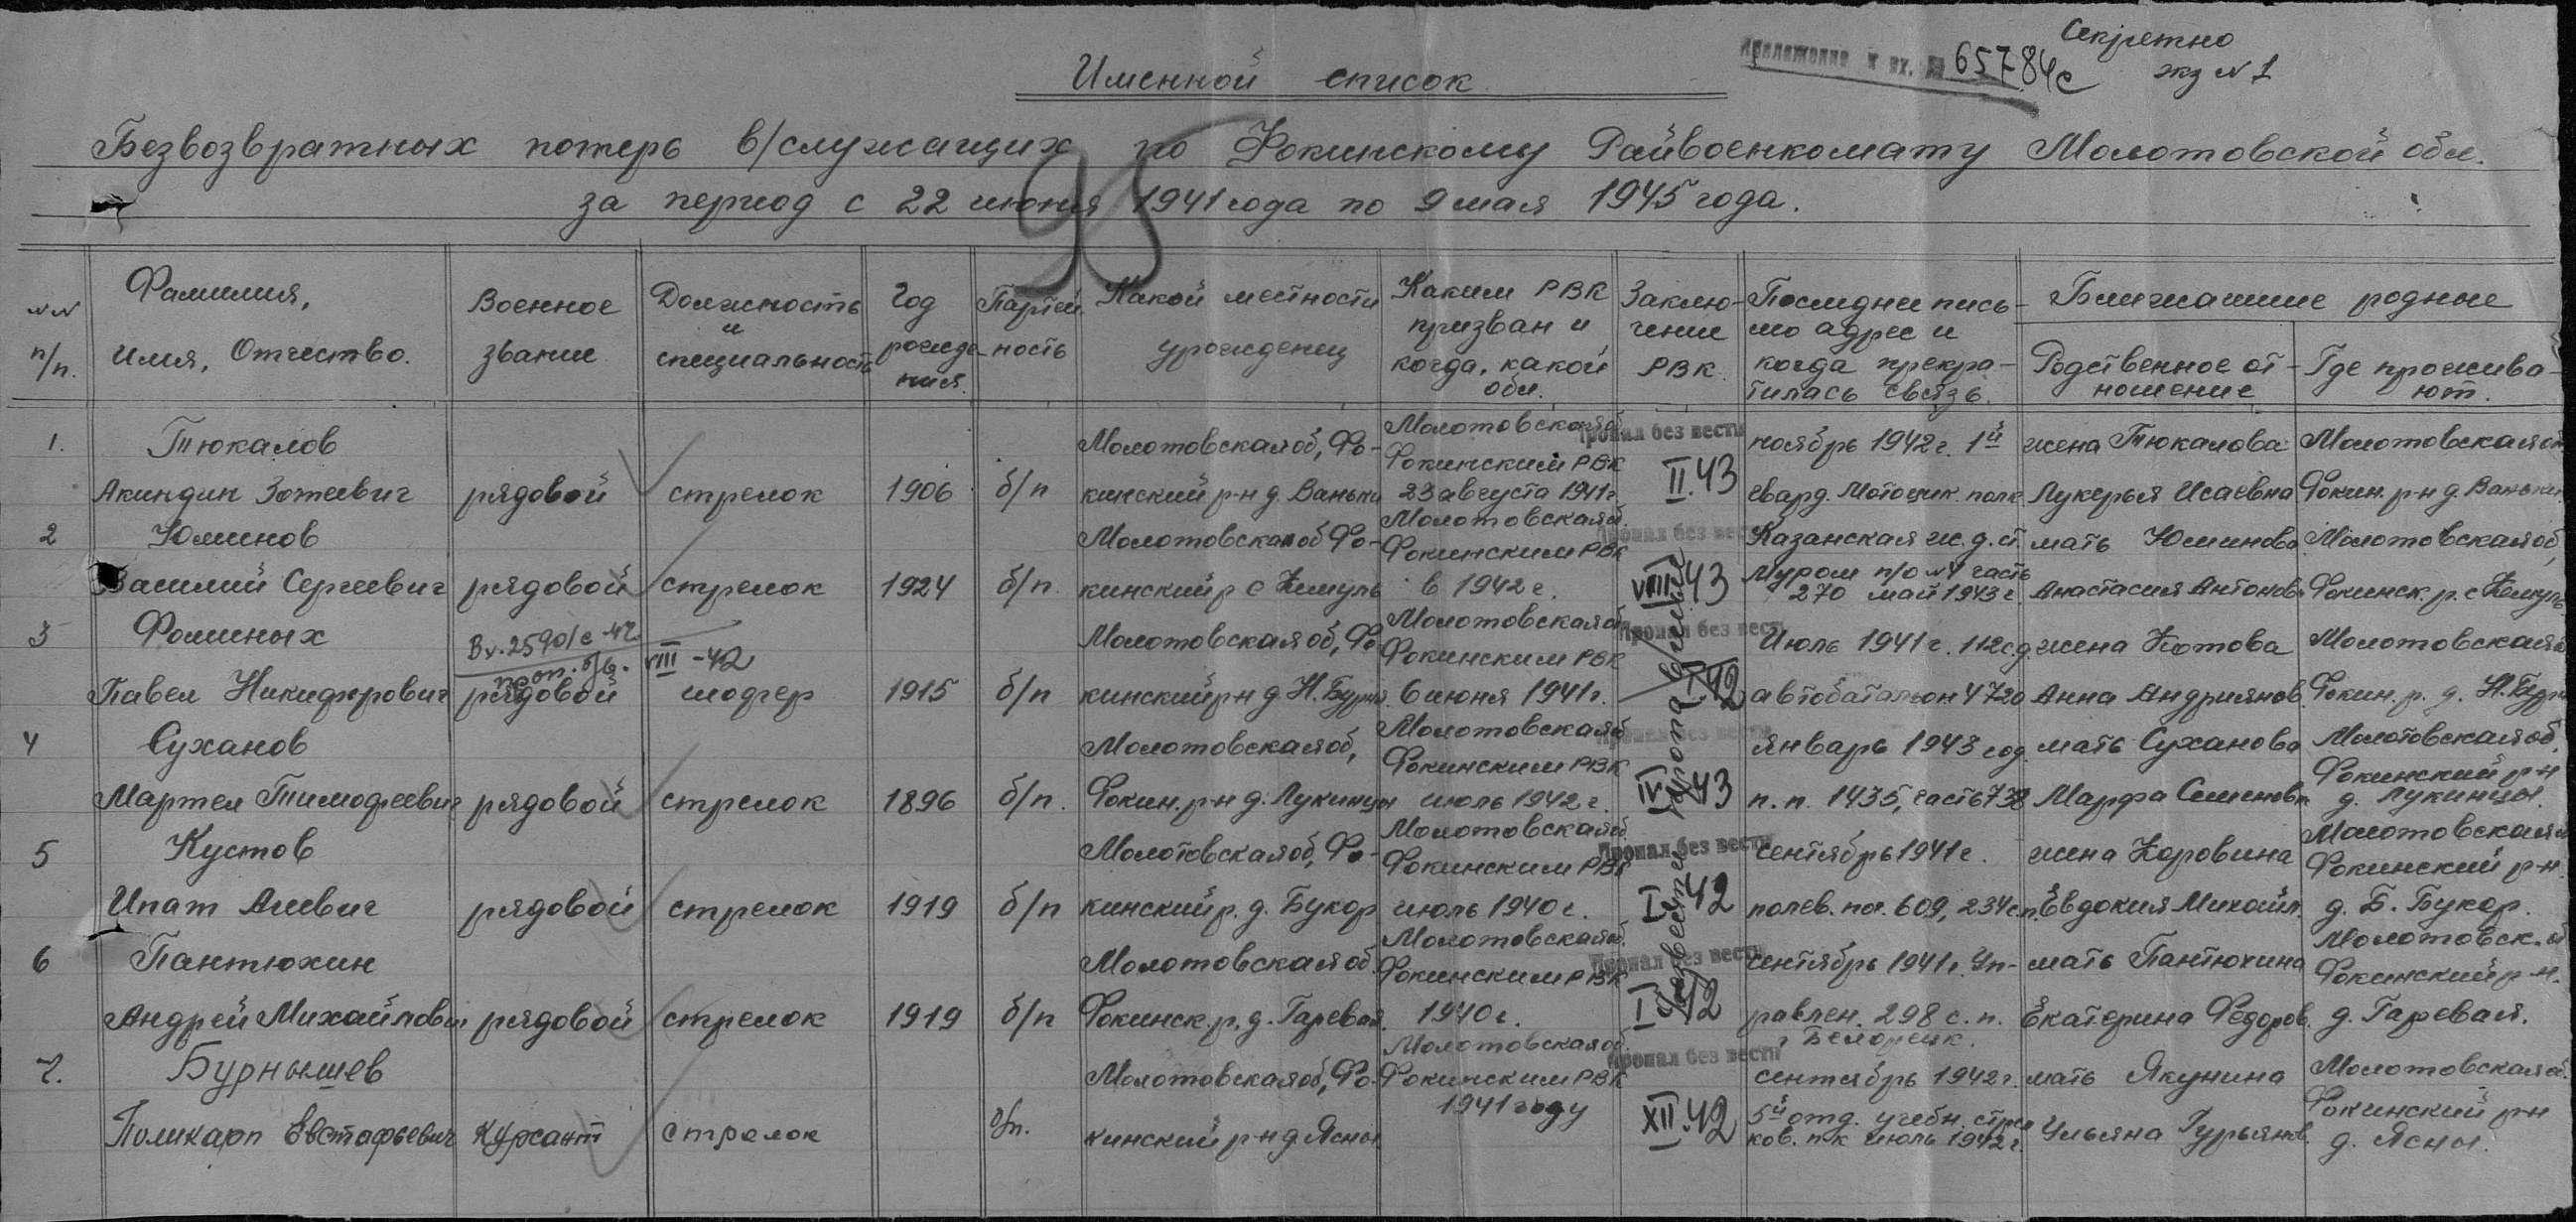 Секретно
приложение к вх. № 65784с
экз N 1
Именной список
Безвозвратных потерь в/служащих по Фокинскому Райвоенкомату Молотовской обл.
за период с 22 июня 1941 года по 9 мая 1945 года.
98
NN п/п.
Фамилия, Имя, Отчество.
Военное звание
Должность и специальность
Год рождения
Партийность
Какой местности уроженец
Каким РВК призван и когда, какой обл.
Заключение РВК.
Последнее письмо адрес и когда прекратилась связь.
Ближайшие родные
Родственное отношение
Где проживают.
1. Тюкалов Молотовская об, Фо- Молотовской об Пропал без вести ноябрь 1942 г. 1й жена Тюкалова Молотовская об
Фокинским РВК
Акиндин Зотеевич рядовой стрелок 1906 б/п кинский р-н д. Ваньки 23 августа 1941 г. II.43 гвард. мотоцик. полк Лукерья Исаевна Фокин. р-н д. Ваньки
2 Юминов Молотовская об Фо- Молотовская об. Пропал без вести Казанская ж.д. ст. мать Юминова Молотовская об,
Фокинским РВК
Василий Сергеевич рядовой стрелок 1924 б/п. кинский р с Кемуль в 1942 г. VIII 43 Муром п/о N4 часть Анастасия Антонов. Фокинск. р. с Кемуль
270 май 1943 г.
3 Фоминых Вх. 2590/с 42 Молотовская об, Фо Молотовская об Пропал без вести Июль 1941 г. 112 с.д. жена Котова Молотовская
проп. б/в. VIII-42 Фокинским РВК
Павел Никифорович рядовой шофер 1915 б/п кинский р н д Н. Бурня. 6 июня 1941 г. 42 автобатальон 4720 Анна Андриянов. Фокин. р. д. Н. Бурн
4 Суханов Молотовская об, Молотовская об Пропал без вести январь 1943 год. мать Суханова Молотовская об,
Фокинским РВК Фокинский р н
Мартел Тимофеевич рядовой стрелок 1896 б/п. Фокин. р-н д. Лукинцы июль 1942 г. IV 43 п. п. 1435, часть 738 Марфа Семеновн д. Лукинцы.
5 Кустов Молотовская об, Фо- Молотовская об. Пропал без вести сентябрь 1941 г. жена Коровина Молотовская
Фокинским РВК Фокинский р-н
Ипат Алевич рядовой стрелок 1919 б/п кинский р. д. Букор июль 1940 г. I 42 полев. поч. 609, 234 с.п. Евдокия Михайл. д. Б. Букор.
6 Пантюхин Молотовская об. Молотовская об. Пропал без вести сентябрь 1941 г. Уп- мать Пантюхина Молотовск. о
Фокинским РВК Фокинский р-н.
Андрей Михайлович рядовой стрелок 1919 б/п Фокинск. р. д. Гаревая. 1940 г. I 42 равлен. 298 с. п. Екатерина Федоров. д. Гаревая.
г Белорецк.
7. Бурнышев Молотовская об, Фо- Молотовская об. Пропал без вести сентябрь 1942 г. мать Якунина Молотовская об.
Фокинским РВК
1941 году Фокинский р н
Поликарп Евстафьевич Курсант стрелок б/п. кинский р н д Ясны XII.42 5й отд. учебн. стрел Ульяна Гурьянов. д. Ясны.
ков. п-к июль 1942 г.